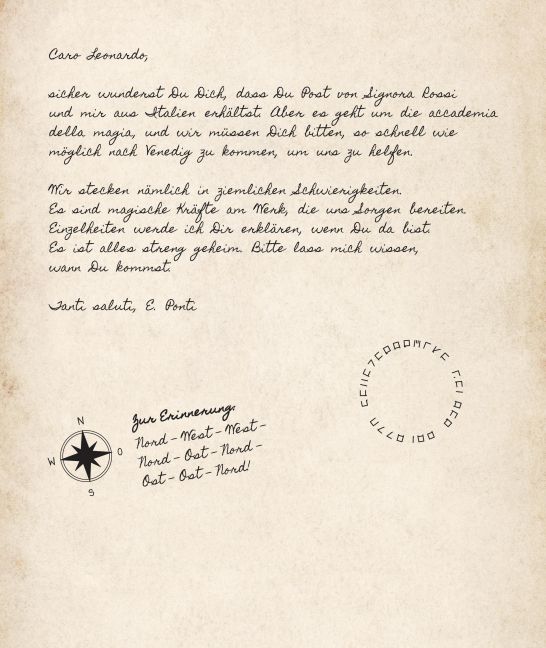 Caro Leonardo,
sicher wunderst Du Dich, dass Du Post von Signora Rossi
und mir aus Italien erhältst. Aber es geht um die accademia
della magia, und wir müssen Dich bitten, so schnell wie
möglich nach Venedig zu kommen, um uns zu helfen.
Wir stecken nämlich in ziemlichen Schwierigkeiten.
Es sind magische Kräfte am Werk, die uns Sorgen bereiten.
Einzelheiten werde ich Dir erklären, wenn Du da bist.
Es ist alles streng geheim. Bitte lass mich wissen,
wann Du kommst.
Tanti saluti, E. Ponti
Zur Erinnerung:
Nord – West – West –
Nord – Ost – Nord –
Ost – Ost – Nord!
N
W
O
S